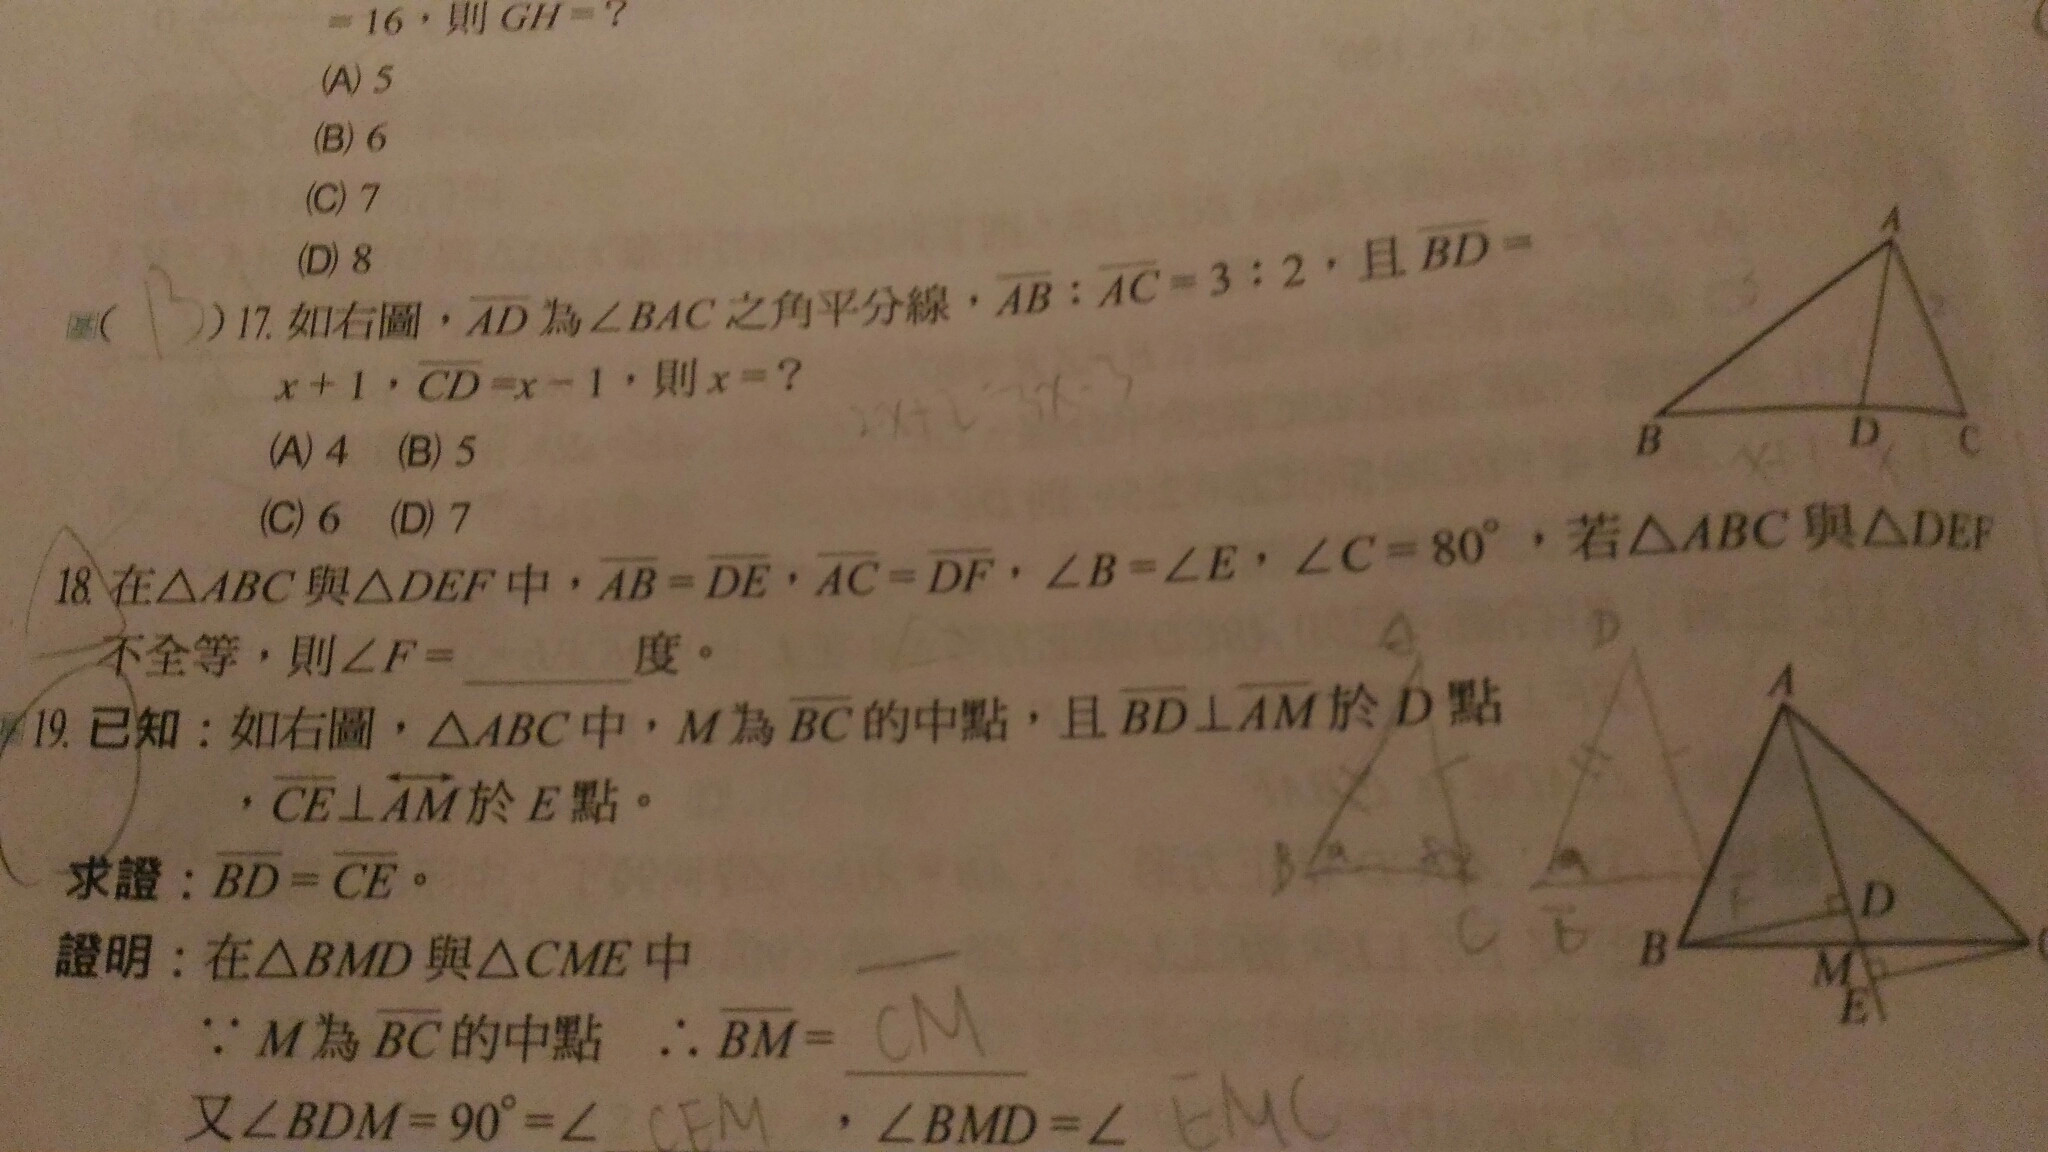 =16，則 GH=？
(A) 5
(B) 6
(C) 7
(D) 8
( B ) 17. 如右圖，AD 為∠BAC 之角平分線，AB：AC=3：2，且 BD=
x+1，CD=x−1，則 x=？
(A) 4 (B) 5
(C) 6 (D) 7
A
B D C
18. 在△ABC 與△DEF 中，AB=DE，AC=DF，∠B=∠E，∠C=80°，若△ABC 與△DEF
不全等，則∠F= 度。
19. 已知：如右圖，△ABC 中，M 為 BC 的中點，且 BD⊥AM 於 D 點
，CE⊥AM 於 E 點。
求證：BD=CE。
證明：在△BMD 與△CME 中
∵ M 為 BC 的中點 ∴ BM= CM
又∠BDM=90°=∠ CEM ，∠BMD=∠ EMC
A D
B C E F
A
D
B M
E